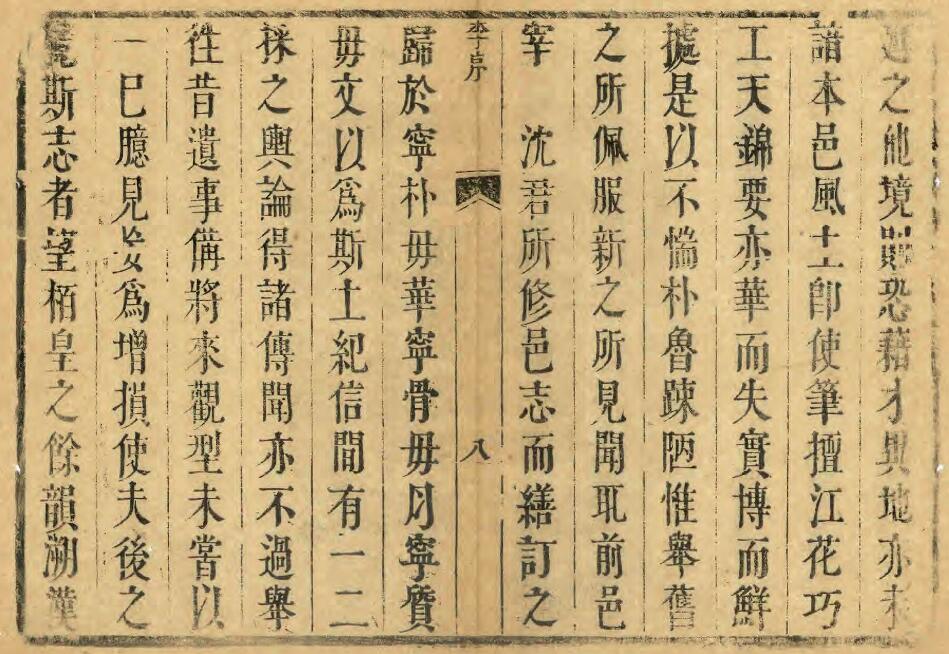 之他境則恐藉才異地亦未
諳本邑風土卽使筆擅江花巧
工天錦要亦華而失實博而鮮
據是以不惴朴魯踈陋惟舉舊
之所佩服新之所見聞取前邑
宰　沈君所修邑志而繕訂之
李序
八
歸於寧朴毋華寧骨毋肉寧質
毋文以爲斯土紀信間有一二
採之輿論得諸傳聞亦不過舉
徃昔遺事備將來觀型未嘗以
一巳臆見妄爲增損使夫後之
覽斯志者望栢皇之餘韻溯漢